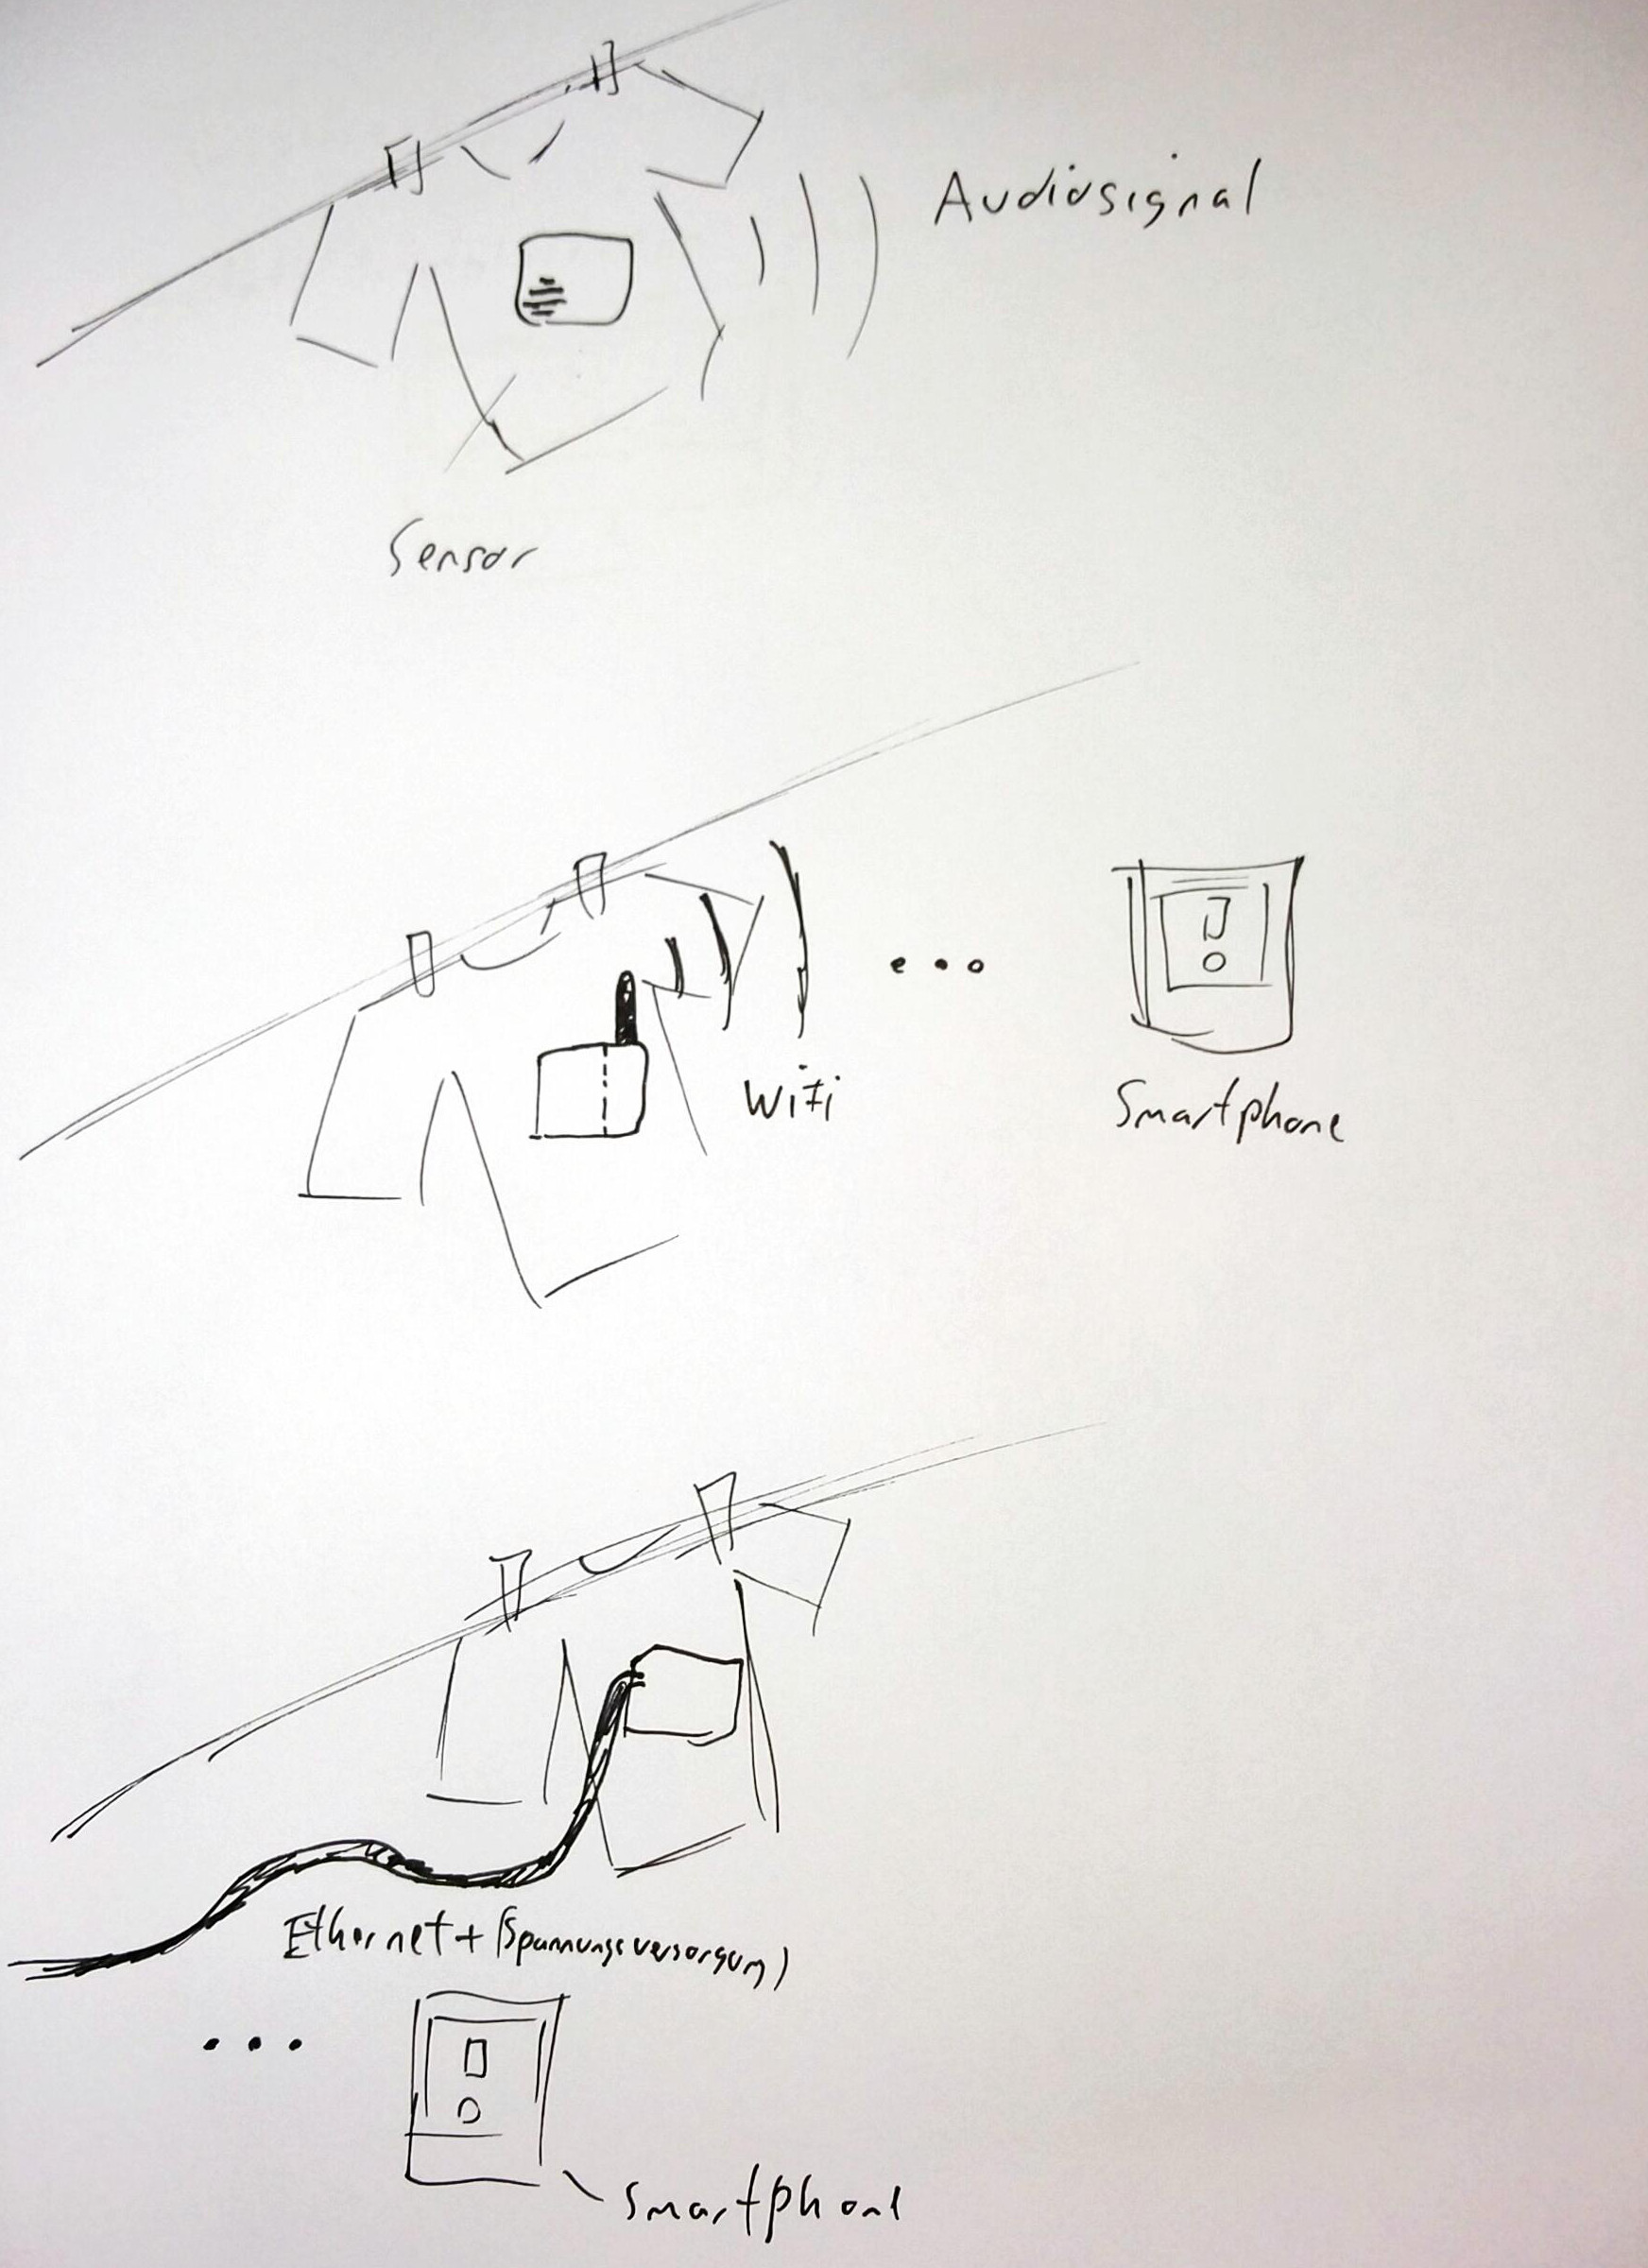 Audiosignal
Sensor
WiFi
Smartphone
Ethernet + (Spannungsversorgung)
Smartphone